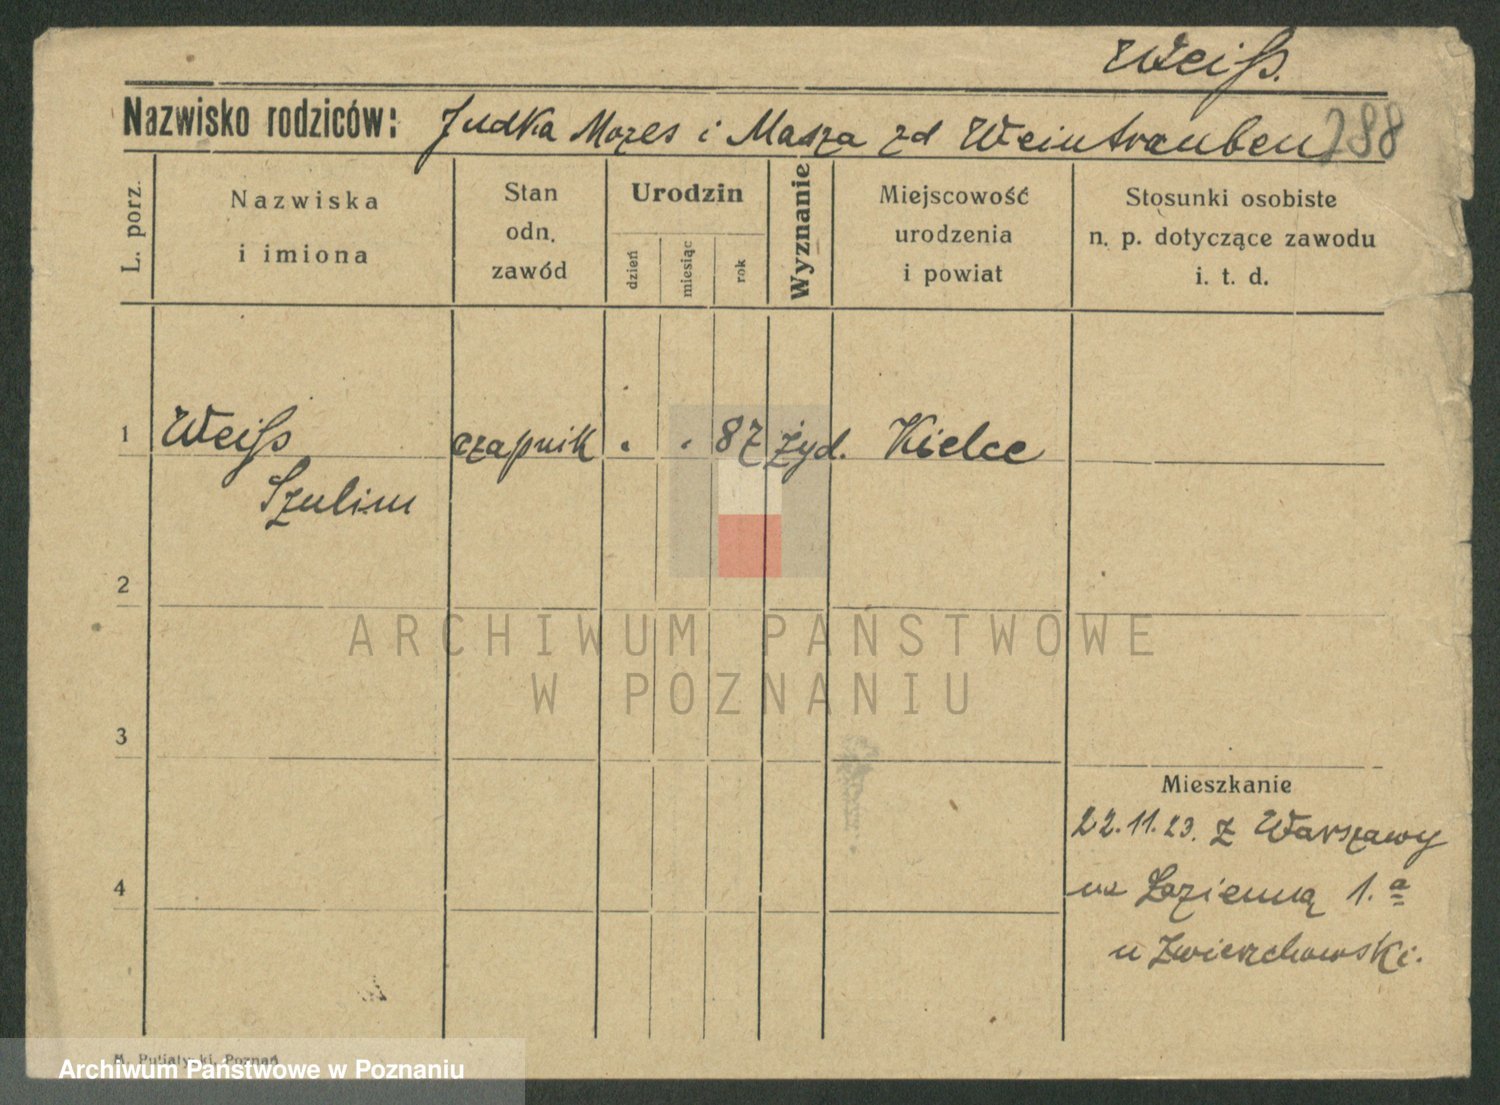 Weiß.
Nazwisko rodziców: Judka Mozes i Masza zd Weintrauben 288
L. porz.
Nazwiska
i imiona
Stan
odn.
zawód
Urodzin
dzień
miesiąc
rok
Wyznanie
Miejscowość
urodzenia
i powiat
Stosunki osobiste
n. p. dotyczące zawodu
i. t. d.
1 Weiß czapnik . . 87 żyd. Kielce
Szulim
2
ARCHIWUM PAŃSTWOWE
W POZNANIU
3
Mieszkanie
22.11.23. z Warszawy
4
na Łazienną 1.a
u Zwierzchowski.
M. Putiatycki, Poznań
Archiwum Państwowe w Poznaniu